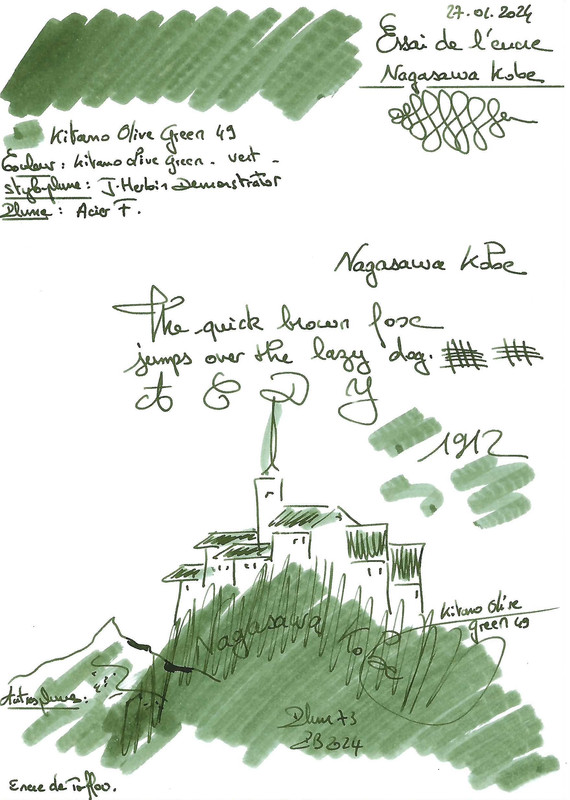 27.01.2024
Essai de l'encre
Nagasawa Kobe
Kitano Olive Green 49
Couleur : Kitano olive green - vert -
stylo plume : J. Herbin Demonstrator
Plume : Acier F.
Nagasawa Kobe
The quick brown foxe
jumps over the lazy dog.
A E D Y
1912
Kitano Olive
green 49
Nagasawa Kobe
Autres plumes :
Plum 73
2024
Encre de Toffoo.